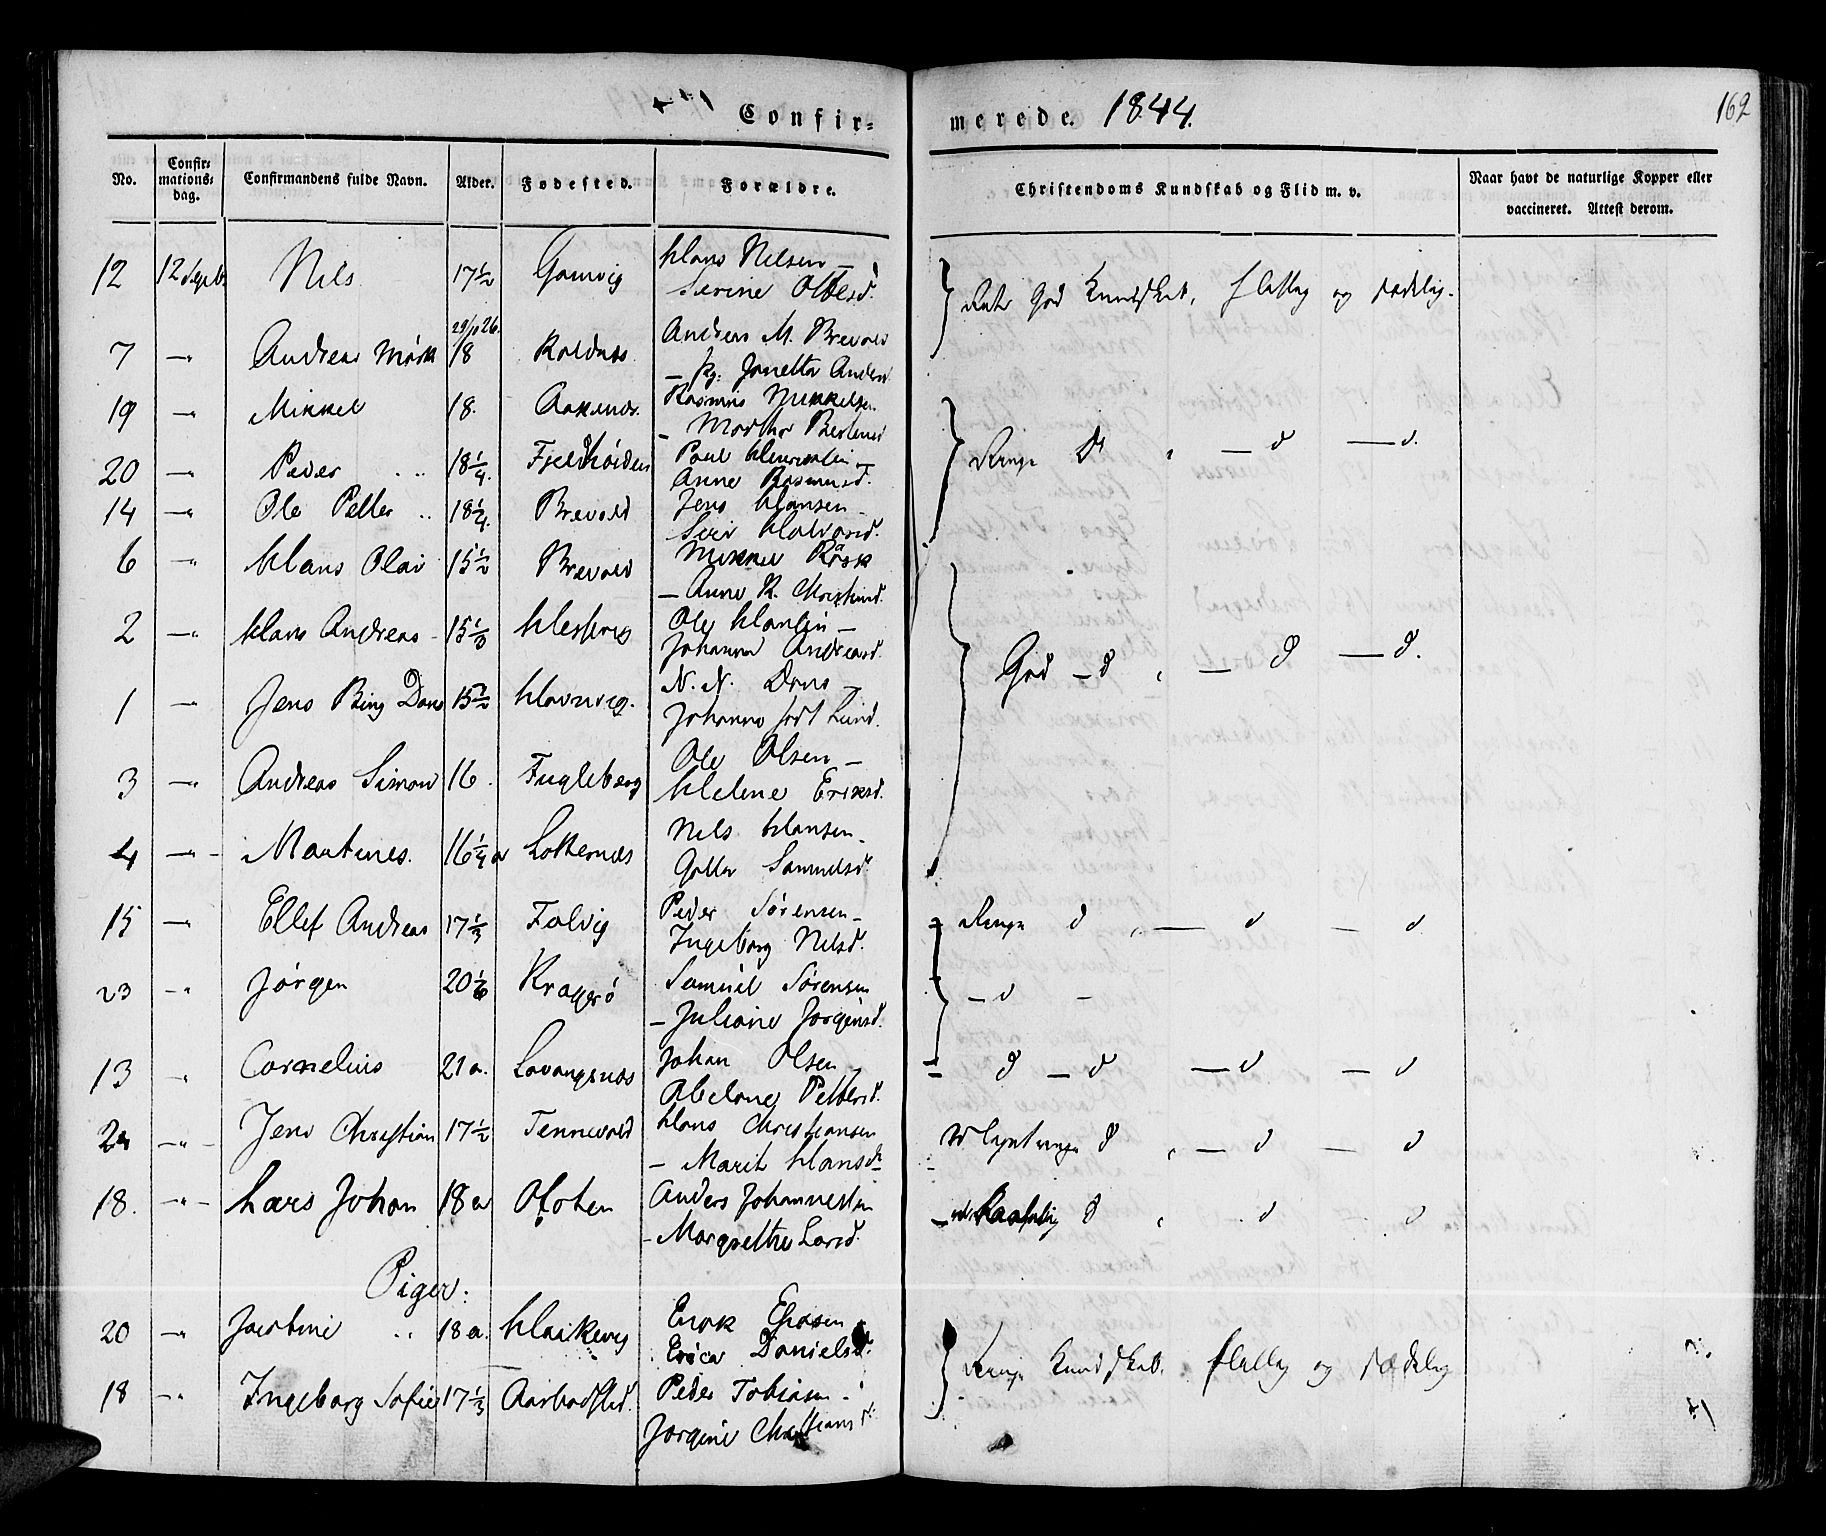 Confir-
merede. 1844.
162
No.
Confir-
mations-
dag.
Confirmandens fulde Navn.
Alder.
Fødested.
Forældre.
Christendoms Kundskab og Flid m. v.
Naar havt de naturlige Kopper eller
vaccineret. Attest derom.
12 12 Septb. Nils 17½ Gamvig Hans Nilsen –
Serine Olsd.
god Kundskab, flittig og sædelig.
29/10 26.
7 –"– Andreas Mørk 18 Andreas M. Brevold
– Janetta Andersd
19 –"– Mikkel 18. Rasmus Mikkelsen
– Berlinsd
Ringe D – d – d.
20 –"– Peder 18¼. Poul
Anne Rasmusd.
14 –"– Ole Petter 18¼. Brevold Jens Hansen –
Siri Halvorsd.
6 –"– Hans Olai 15½ Brevold Mikkel Røsk
– Anne K.
2 –"– Hans Andreas 15⅓ Ole Hansen –
Johanna Andreasd.
God – d – d – d.
1 –"– Jens Bing Dons 15½ Havnvig. N. N. Dons –
Johanna Lund.
3 –"– Andreas Simon 16. Fugleberg Ole Olsen –
Helene Eriksd.
4 –"– Martines. 16¼ a Løkkenæs Nils Hansen –
Samuelsd
15 –"– Ellef Andreas 17⅓ Folvig Peder Sørensen –
Ingeborg Nilsd.
Ringe d – d – d
23 –"– Jørgen 20⅙ Kragerø Samuel Sørensen
– Juliane Jørgensd.
– d –
13 " Cornelius 21 a. Lavangsnæs Johan Olsen –
Abelone Pettersd.
d – d – d – d
24 –"– Jens Christian 17½ Tennevold Hans Christiansen
– Marit Hansd
d – d – d
18. –"– Lars Johan 18 a Ofoten Anders Johannesen
– Margrethe Larsd.
d d d
Piger.
20 –"– Justine 18 a. Erik
Danielsd.
Ringe Kundskab, flittig og sædelig
18 –"– Ingeborg Sofie 17⅓ Aarbodsted. Peder Tobiasen –
Jørgine Christiansd.